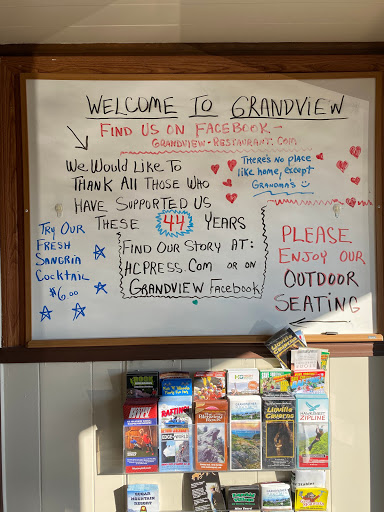 WELCOME TO GRANDVIEW
FIND US ON FACEBOOK -
GRANDVIEW-RESTAURANT.COM
We Would Like To
THANK ALL THOSE WHO
HAVE SUPPORTED US
THESE 44 YEARS
THERE'S NO PLACE
like home, except
GRANDMA'S
TRY OUR
FRESH
SANGRIA
COCKTAIL
$6.00
FIND OUR STORY AT:
HCPRESS.COM OR ON
GRANDVIEW Facebook
PLEASE
ENJOY OUR
OUTDOOR
SEATING
RAFTING
Linville
Caverns
ZIPLINE